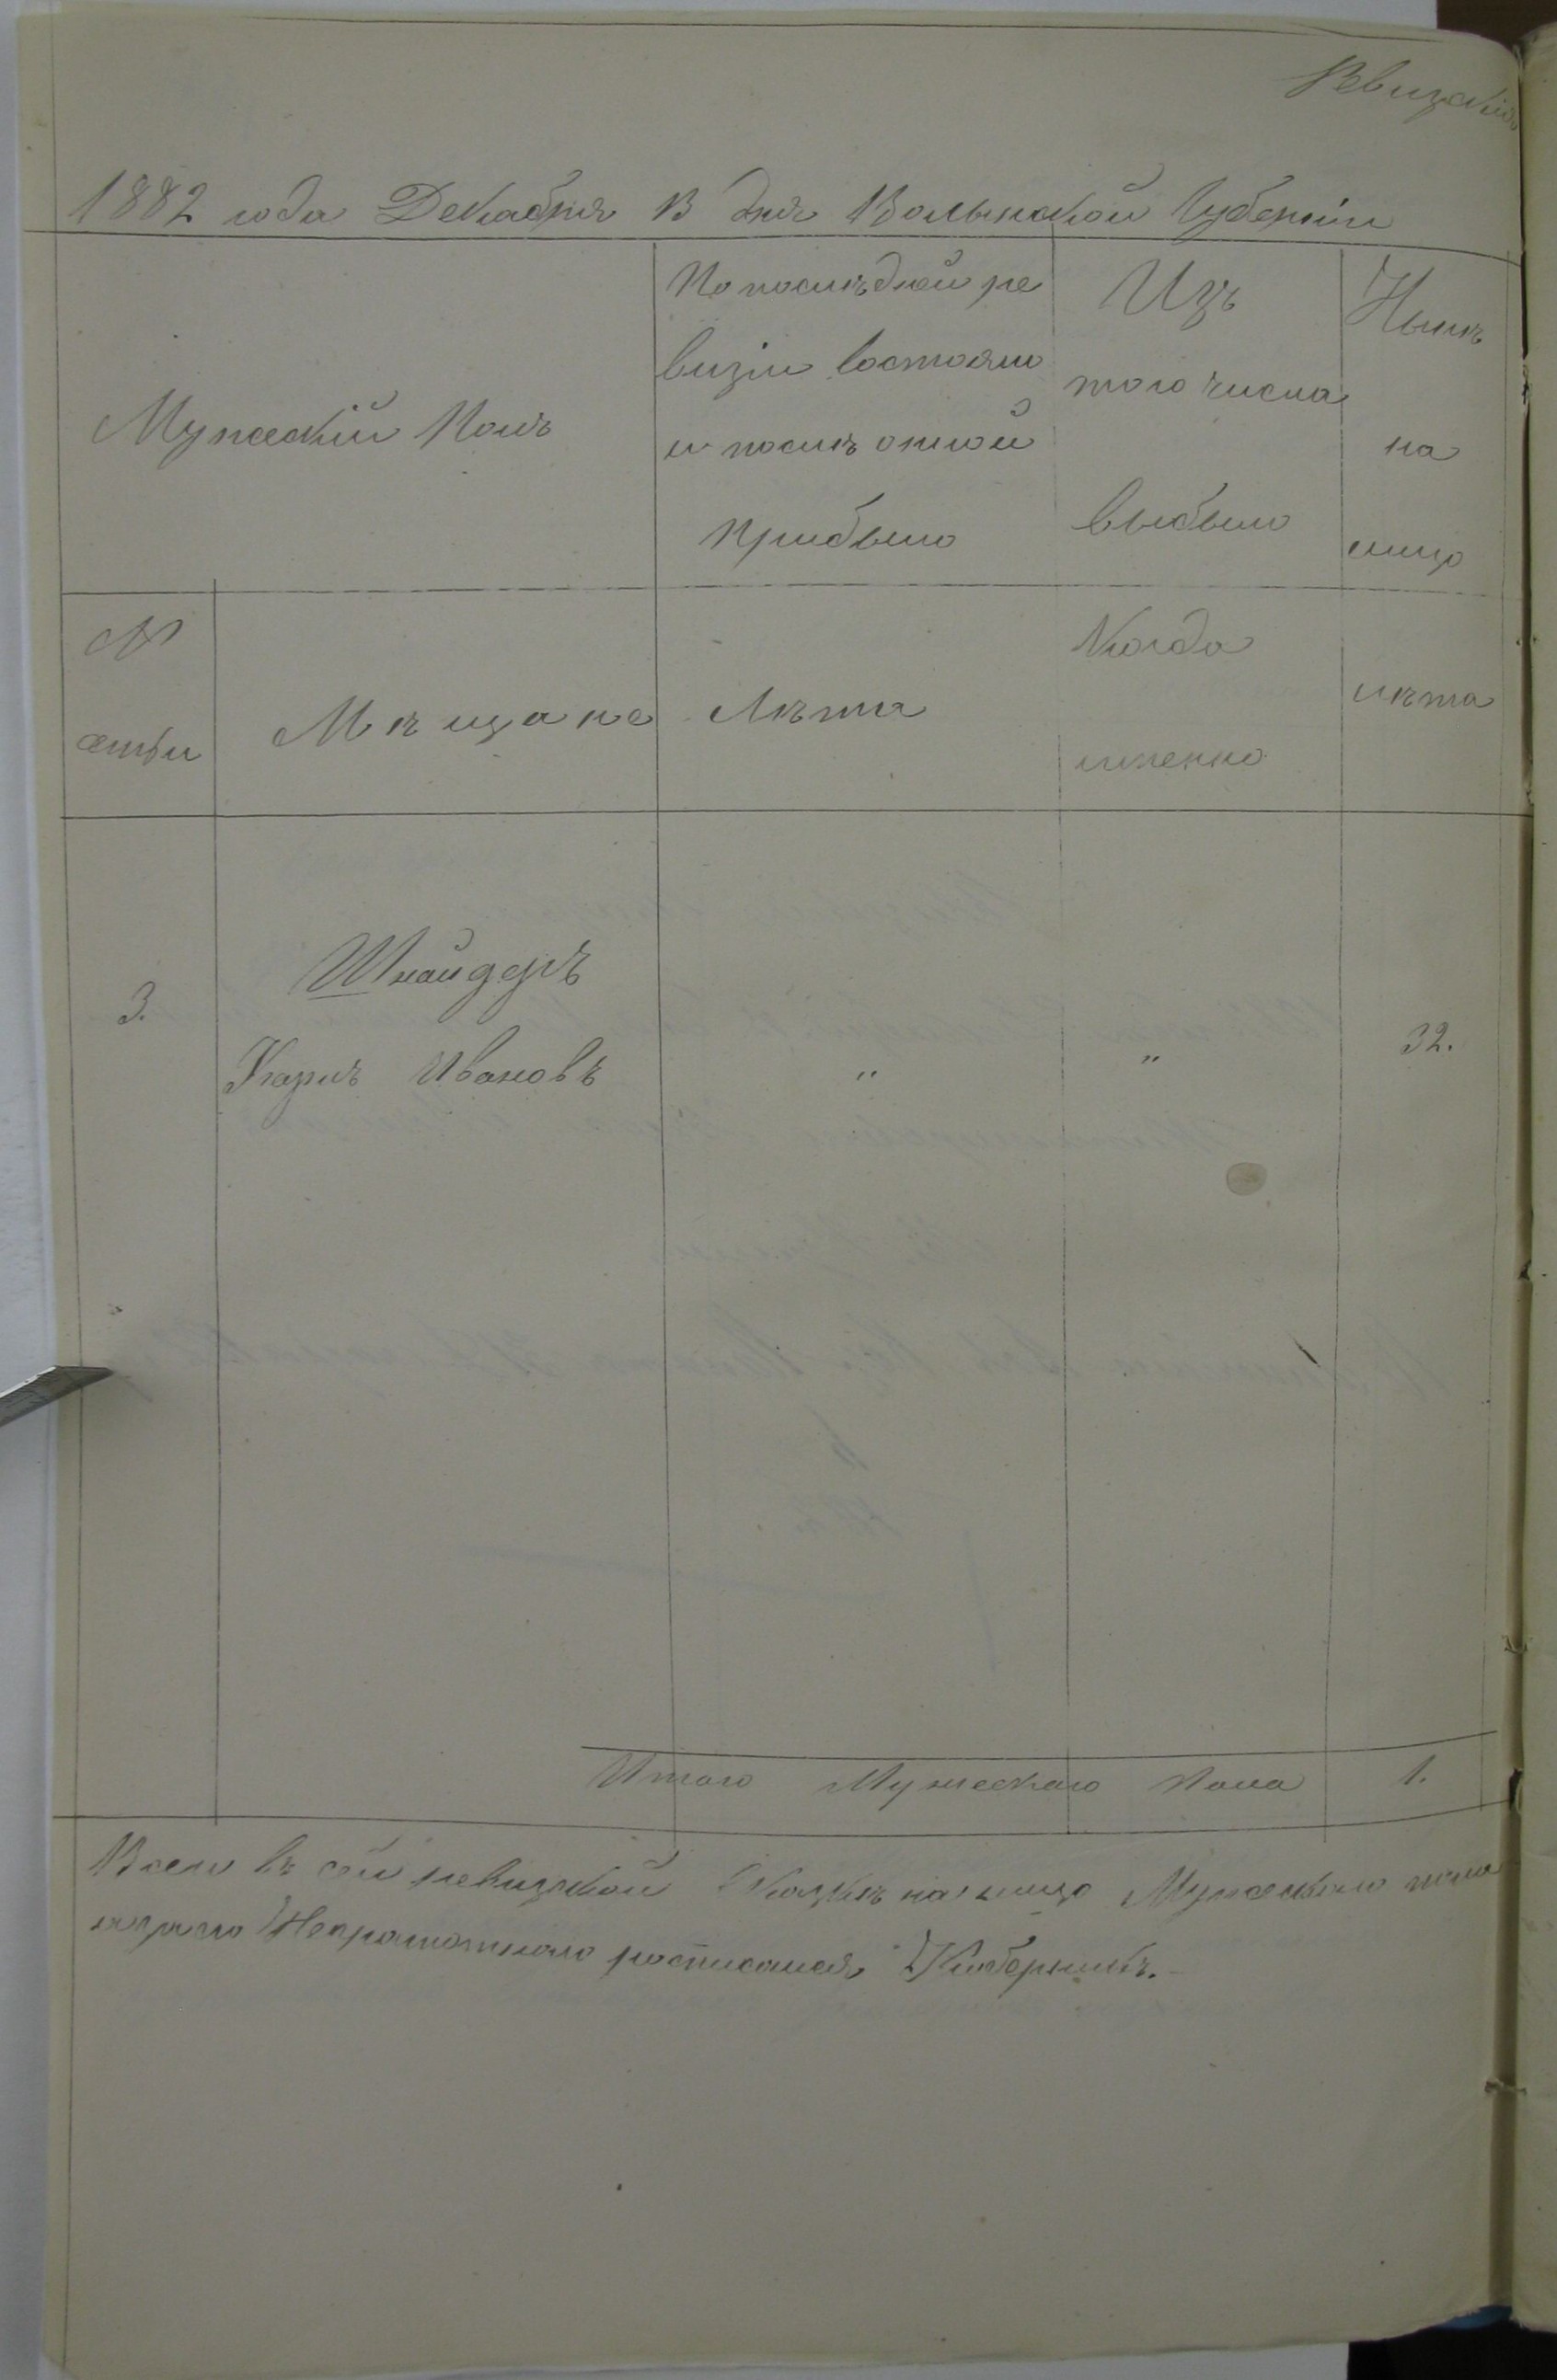 Ревизская
1882 года Декабря 13 дня Волынской Губерніи
Мужескій Полъ
По послѣдней ре
визіи состояло
и послѣ оной
прибыло
Изъ
того числа
выбыло
Нынѣ
на
лицо
№
семьи
Мѣщане
Лѣта
Когда
именно
лѣта
3.
Шнайдеръ
Карлъ Ивановъ
"
"
32.
Итого Мужескаго Пола 1.
Всего въ сей ревизской Сказкѣ на лицо Мужескаго пола
Неграмотнаго росписался